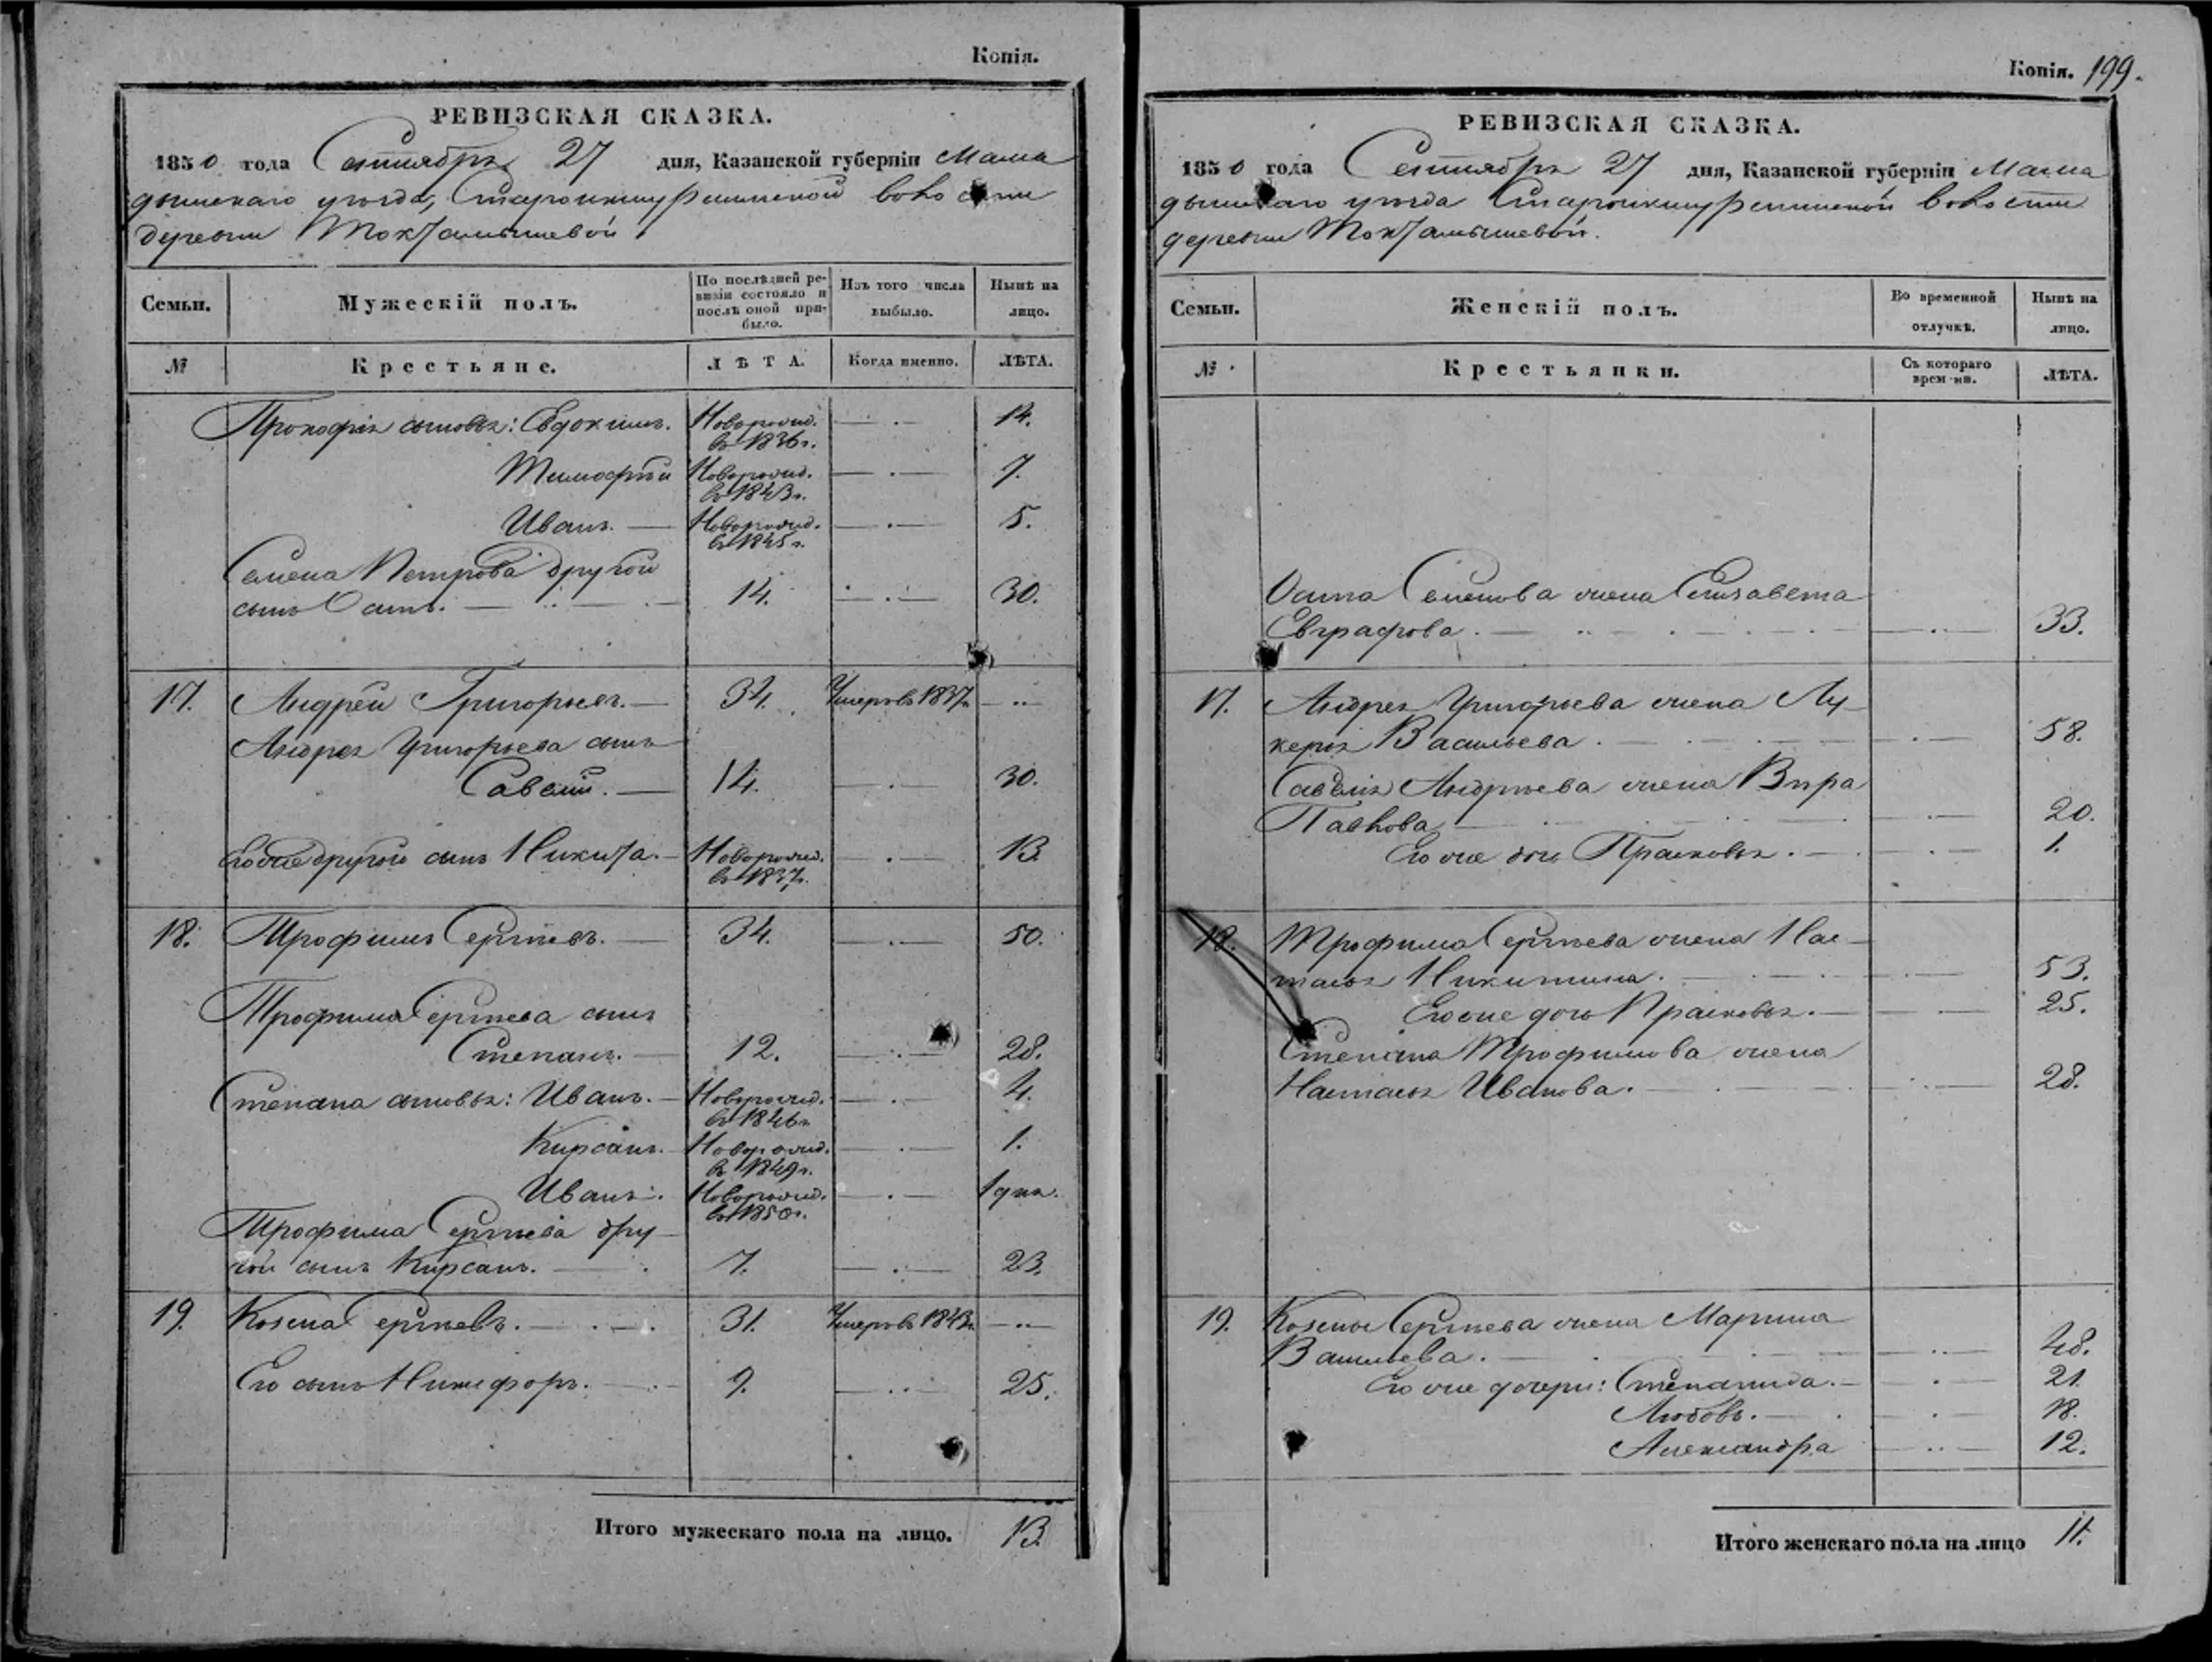 Копія.
РЕВИЗСКАЯ СКАЗКА.
1850 года Сентября 27 дня, Казанской губерніи Мама
дышскаго уѣзда, волости
деревни Токтамышевой
Семьи. Мужескій полъ. По послѣдней ре- визіи состояло и послѣ оной при- было. Изъ того числа выбыло. Нынѣ на лицо.
№ Крестьяне. ЛѢТА. Когда именно. ЛѢТА.
Прокофія сыновья: Евдокимъ. Новорожд. въ 1836г. 14.
Тимофѣй Новорожд. въ 1843г. 7.
Иванъ. Новорожд. въ 1845г. 5.
Семена Петрова другой
сынъ Осипъ. 14. 30.
17. Андрей Григорьевъ. 34. Умеръ въ 1837г.
Андрея Григорьева сынъ
Савелій. 14. 30.
Егоже другой сынъ Никита. Новорожд. въ 1837г. 13.
18. Трофимъ Сергѣевъ. 34. 50.
Трофима Сергѣева сынъ
Степанъ. 12. 28.
Степана сыновья: Иванъ. Новорожд. въ 1846г. 4.
Кирсанъ. Новорожд. въ 1849г. 1.
Иванъ. Новорожд. въ 1850г. 1 дня.
Трофима Сергѣева дру
гой сынъ Кирсанъ. 7. 23.
19. Козма Сергѣевъ. 31. Умеръ въ 1843г.
Его сынъ Никифоръ. 9. 25.
Итого мужескаго пола на лицо. 13.
Копія. 199.
РЕВИЗСКАЯ СКАЗКА.
1850 года Сентября 27 дня, Казанской губерніи Мама
дышскаго уѣзда волости
деревни Токтамышевой.
Семьи. Женскій полъ. Во временной отлучкѣ. Нынѣ на лицо.
№ Крестьянки. Съ котораго времени. ЛѢТА.
Осипа Семенова жена Елизавета
Евграфова. 33.
17. Андрея Григорьева жена Лу
керья Васильева. 58.
Савелія Андрѣева жена Вѣра
Павлова 20.
Его же дочь Прасковья. 1.
18. Трофима Сергѣева жена Нас
тасья Никитина. 53.
Егоже дочь Прасковья. 25.
Степана Трофимова жена
Настасья Иванова. 28.
19. Козмы Сергѣева жена Марина
Васильева. 48.
Его же дочери: Степанида. 21.
Любовь. 18.
Александра 12.
Итого женскаго пола на лицо 11.